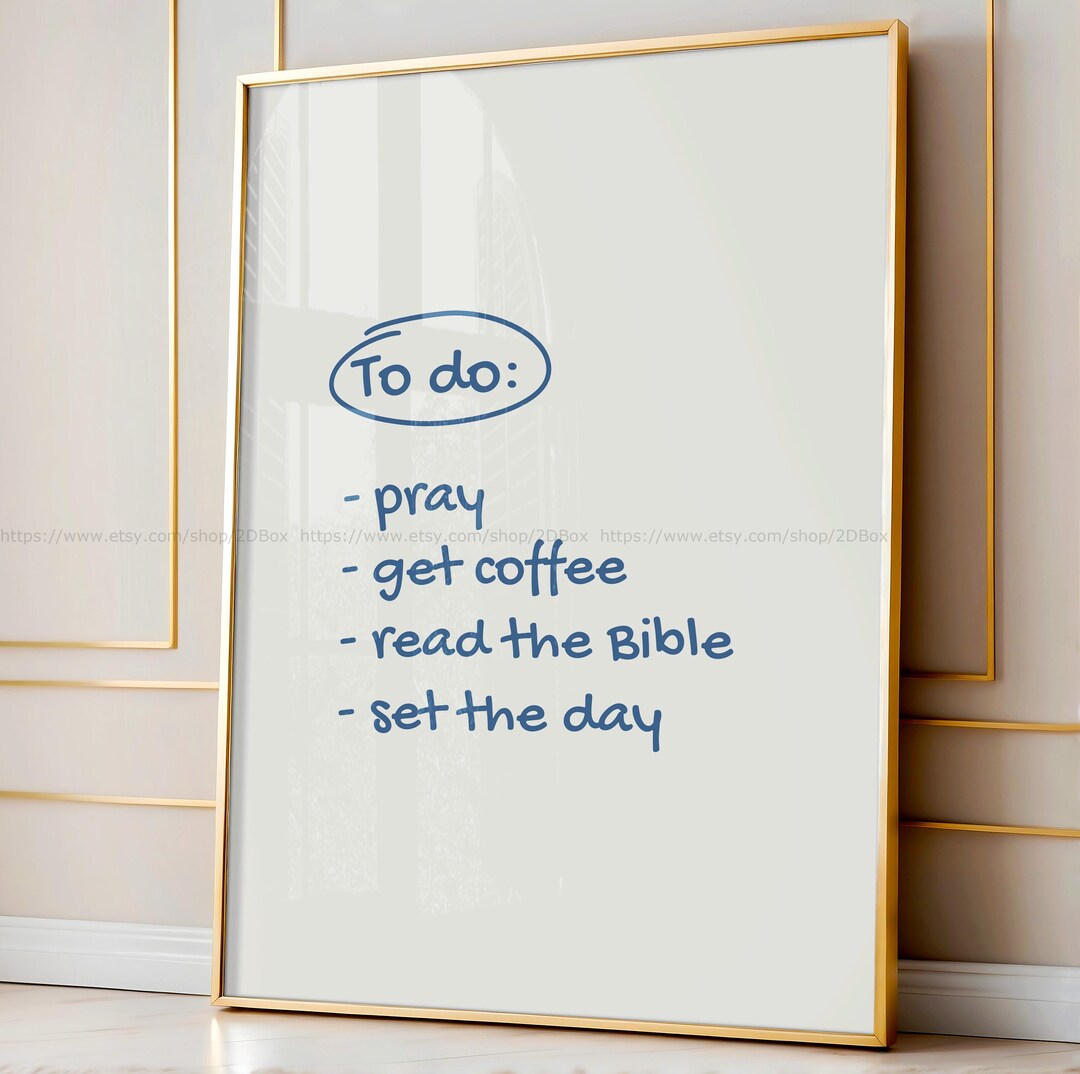 To do:
- pray
https://www.etsy.com/shop/2DBox https://www.etsy.com/shop/2DBox https://www.etsy.com/shop/2DBox
- get coffee
- read the Bible
- set the day